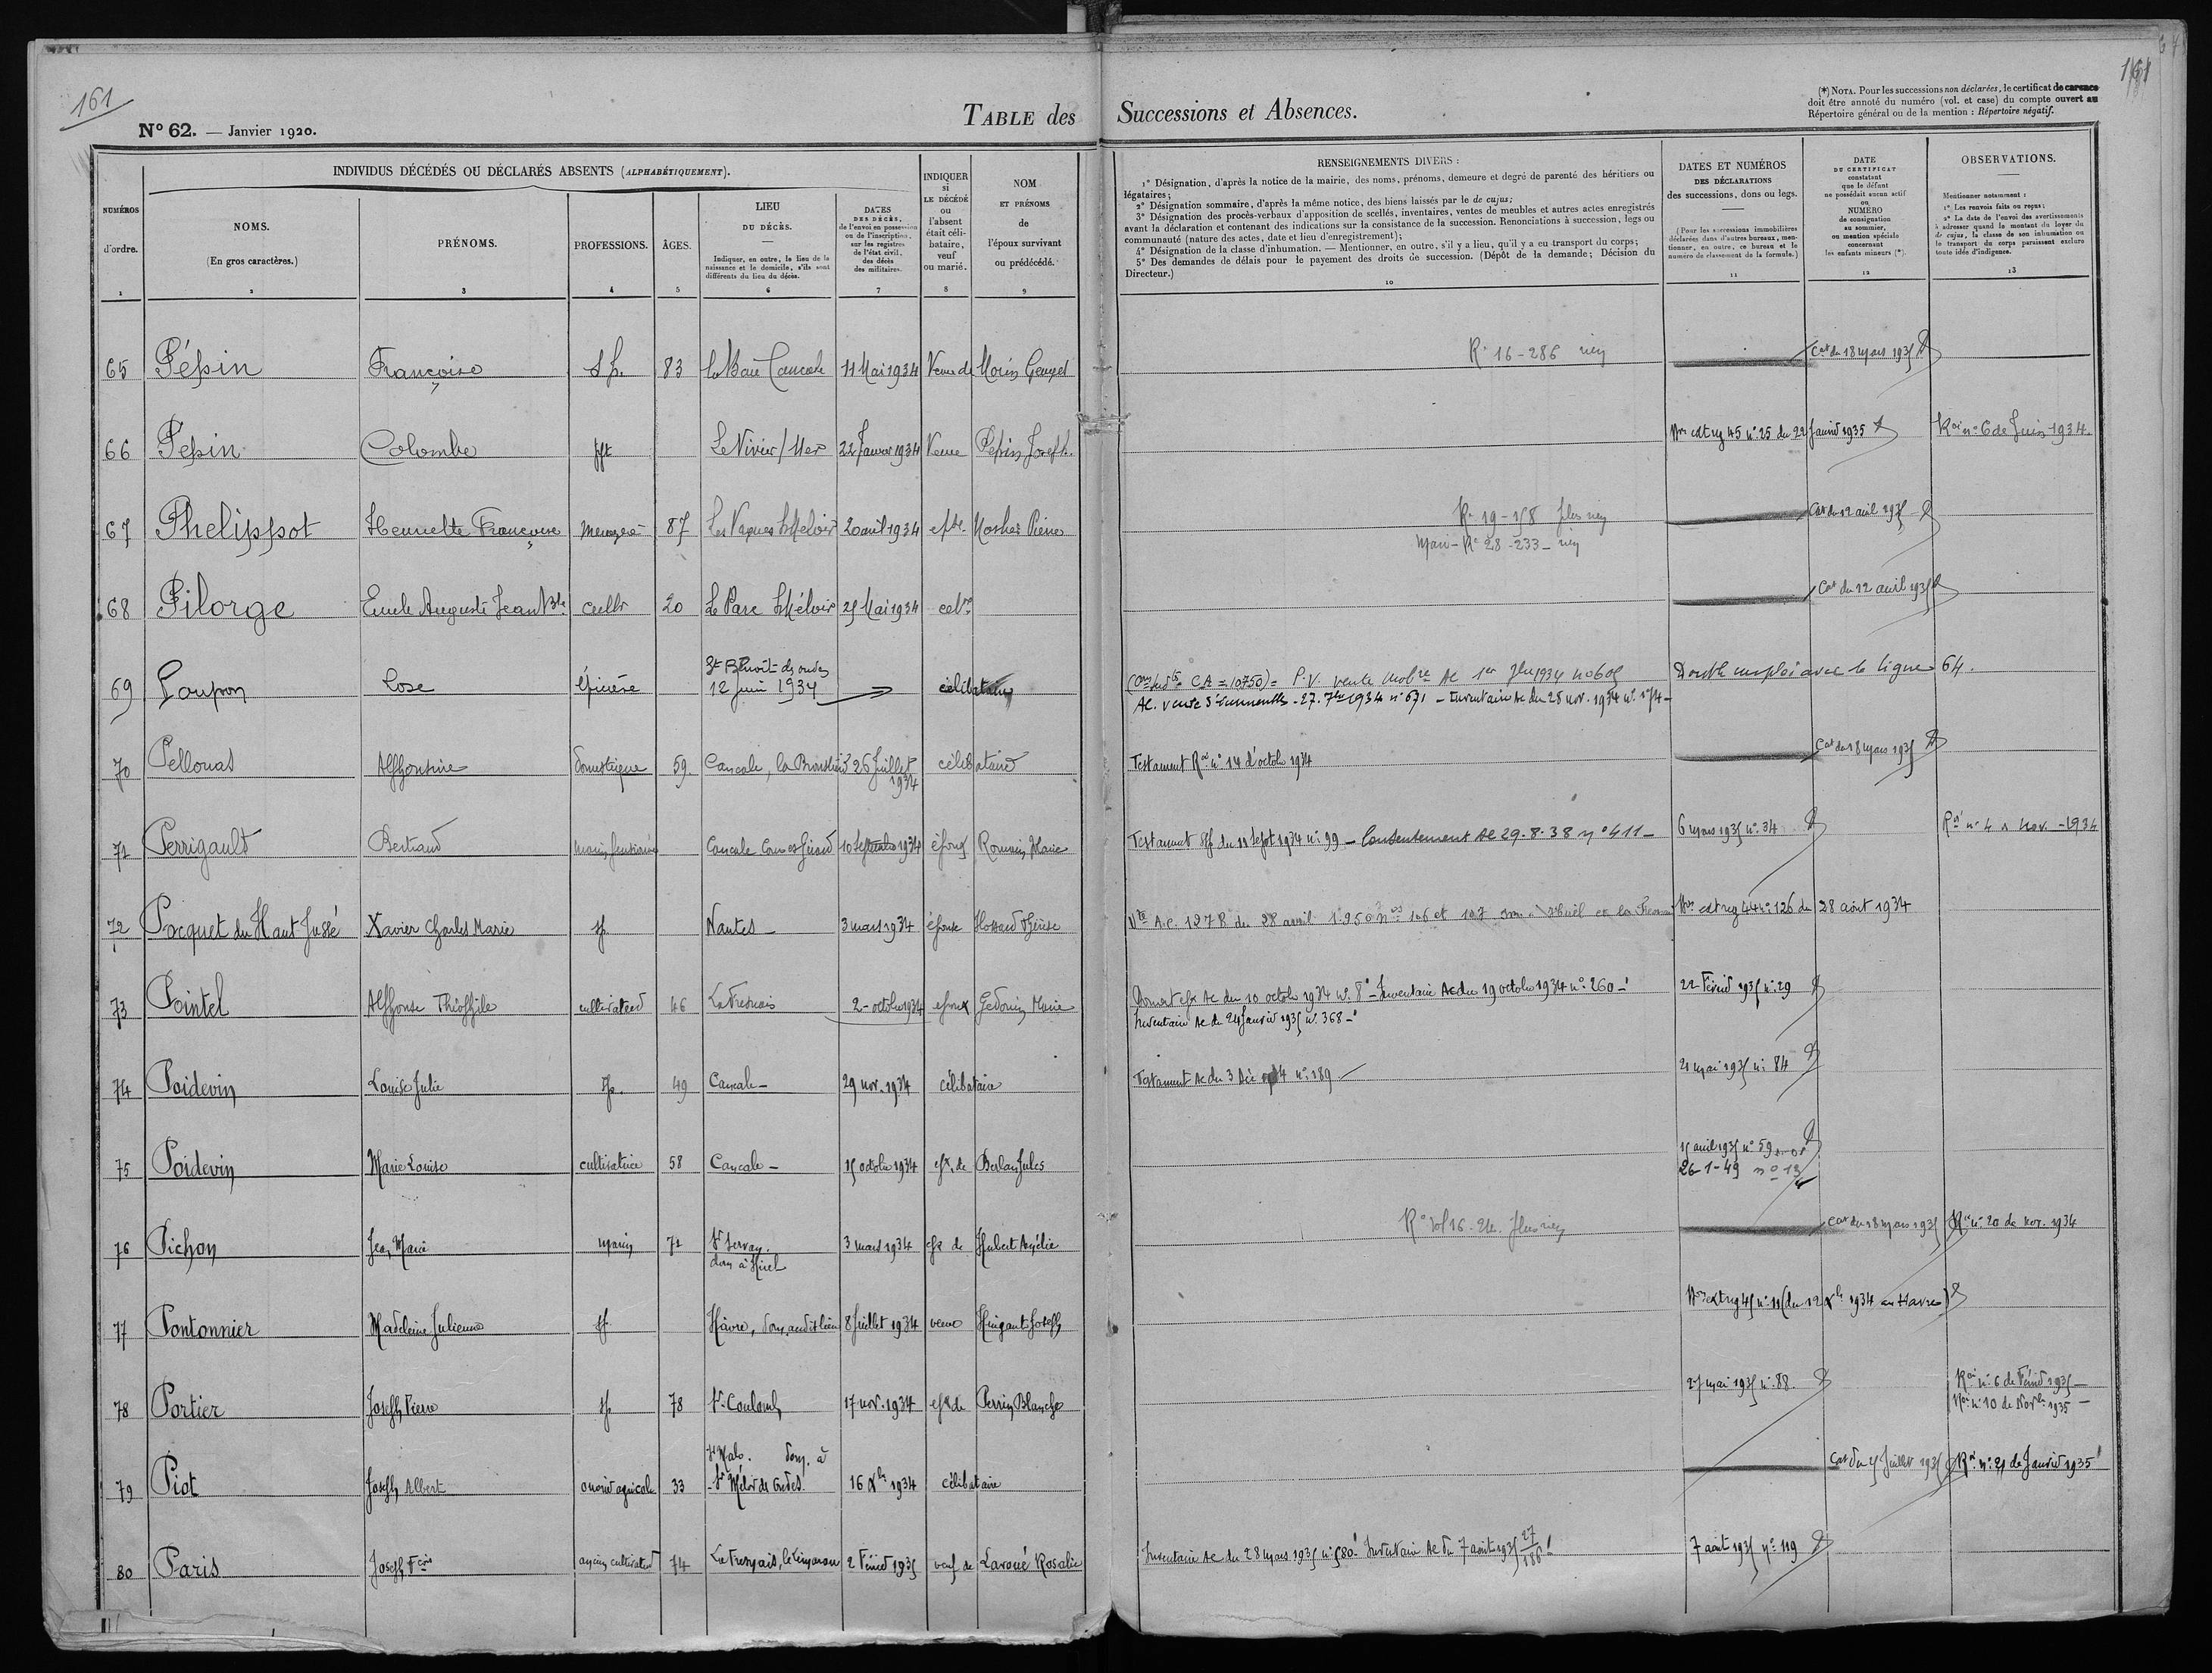 161
161
(*) NOTA. Pour les successions non déclarées, le certificat de carence
doit être annoté du numéro (vol. et case) du compte ouvert au
Répertoire général ou de la mention : Répertoire négatif.
N° 62. — Janvier 1920.
TABLE des Successions et Absences.
NUMÉROS
d'ordre.
1
INDIVIDUS DÉCÉDÉS OU DÉCLARÉS ABSENTS (ALPHABÉTIQUEMENT).
NOMS.
(En gros caractères.)
2
PRÉNOMS.
3
PROFESSIONS.
4
ÂGES.
5
LIEU
DU DÉCÈS.
Indiquer, en outre, le lieu de la
naissance et le domicile, s'ils sont
différents du lieu du décès.
6
DATES
DES DÉCÈS,
de l'envoi en possession
ou de l'inscription,
sur les registres
de l'état civil,
des décès
des militaires.
7
INDIQUER
si
LE DÉCÉDÉ
ou
l'absent
était céli-
bataire,
veuf
ou marié.
8
NOM
ET PRÉNOMS
de
l'époux survivant
ou prédécédé.
9
RENSEIGNEMENTS DIVERS :
1° Désignation, d'après la notice de la mairie, des noms, prénoms, demeure et degré de parenté des héritiers ou
légataires;
2° Désignation sommaire, d'après la même notice, des biens laissés par le de cujus;
3° Désignation des procès-verbaux d'apposition de scellés, inventaires, ventes de meubles et autres actes enregistrés
avant la déclaration et contenant des indications sur la consistance de la succession. Renonciations à succession, legs ou
communauté (nature des actes, date et lieu d'enregistrement);
4° Désignation de la classe d'inhumation. — Mentionner, en outre, s'il y a lieu, qu'il y a eu transport du corps;
5° Des demandes de délais pour le payement des droits de succession. (Dépôt de la demande; Décision du
Directeur.)
10
DATES ET NUMÉROS
DES DÉCLARATIONS
des successions, dons ou legs.
(Pour les successions immobilières
déclarées dans d'autres bureaux, men-
tionner, en outre, ce bureau et le
numéro de classement de la formule.)
11
DATE
DU CERTIFICAT
constatant
que le défunt
ne possédait aucun actif
ou
NUMÉRO
de consignation
au sommier,
ou mention spéciale
concernant
les enfants mineurs (*).
12
OBSERVATIONS.
Mentionner notamment :
1° Les renvois faits ou reçus;
2° La date de l'envoi des avertissements
à adresser quand le montant du loyer du
de cujus, la classe de son inhumation ou
le transport du corps paraissent exclure
toute idée d'indigence.
13
65 Pépin Françoise s p. 83 11 Mai 1934 Veuve de Morin R° 16-286 Cat du 18 mars 1935
66 Pepin Colombe Le Vivier / Mer 22 Janvier 1934 Veuve Pepin Joseph. extreg 45 n° 25 du 22 Janvier 1935 Roi n° 6 de Juin 1934.
67 Phelippot Henriette Françoise ménagère 87 20 avril 1934 Pierre R° 19-158 plus rien Cat du 12 avril 1935
Mari - R° 28-233 - rien
68 Pilorge Emile Auguste Jean Bte cultr 20 Le Parc St Méloir 25 Mai 1934 celre Cat du 12 avril 1935
69 Poupon Rose épicière St Benoît des ondes
12 juin 1934 célibataire P.V. vente mobre Ac 1er 1934 n° 605 Double emploi avec la ligne 64.
Ac. vente 27. 7bre 1934 n° 671 - Inventaire Ac du 28 nov. 1934
70 Pellouas Alphonsine domestique 59. Cancale, 26 Juillet
1934 célibataire Testament Roi n° 14 d'octobre 1934 Cat du 18 mars 1935
71 Perrigault Bertrand marin pensionné Cancale 10 septembre 1934 époux Romain, Marie Testament du 11 sept 1934 n° 99 - Consentement Ac 29.8.38 n° 411 - 6 mars 1935 n° 34 Roi n° 4 Nov. - 1934
72 Pocquet du Haut Jussé Xavier Charles Marie sp Nantes - 3 mars 1934 époux Hossard Thérèse du 28 avril 1950 nos 106 et 107 extreg 44 n° 126 du 28 août 1934
73 Pointel Alphonse Théophile cultivateur 46 La Fresnais 2 - octobre 1934 époux Gedouin, Marie Ac du 10 octobre 1934 n° 8 - Inventaire Ac du 19 octobre 1934 n° 260 - 22 Février 1935 n° 29
Inventaire Ac du 24 Janvier 1935 n° 368 -
74 Poidevin Louise Julie sp. 49 Cancale - 29 nov. 1934 célibataire Testament Ac du 3 Déc 1934 n° 189 21 mai 1935 n° 84
75 Poidevin Marie Louise cultivatrice 58 Cancale - 15 octobre 1934 épx. de Berlan Jules 15 avril 1935 n° 59
26-1-49 n° 13
76 Pichon Jean Marie marin 71 St Servan.
dom à Hirel 3 mars 1934 épx de Hubert Amélie Cat du 18 mars 1935 Roi n° 20 de nov. 1934
77 Pontonnier Madeleine Julienne sp Hâvre, dom. audit lieu 8 Juillet 1934 veuve Hingant Joseph extreg 45 n° 11 (du 12 Xbre 1934 au Havre)
78 Portier Joseph Pierre sp 78 St-Coulomb 17 nov. 1934 épx de Perrin Blanche 27 mai 1935 n° 88. Roi n° 6 de Février 1935 -
Roi n° 10 de Novbre 1935 -
79 Piot Joseph Albert ouvrier agricole 33 St Malo. dom. à
St Méloir des Ondes 16 Xbre 1934 célibataire Cat du 5 Juillet 1935 Roi n° 21 de Janvier 1935
80 Paris Joseph Fcois ancien cultivateur 74 La Fresnais, 2 Février 1935 veuf de Lavoué Rosalie Inventaire Ac du 28 mars 1935 n° 580. Inventaire Ac du 7 août 1935 27/186 7 août 1935 n° 119